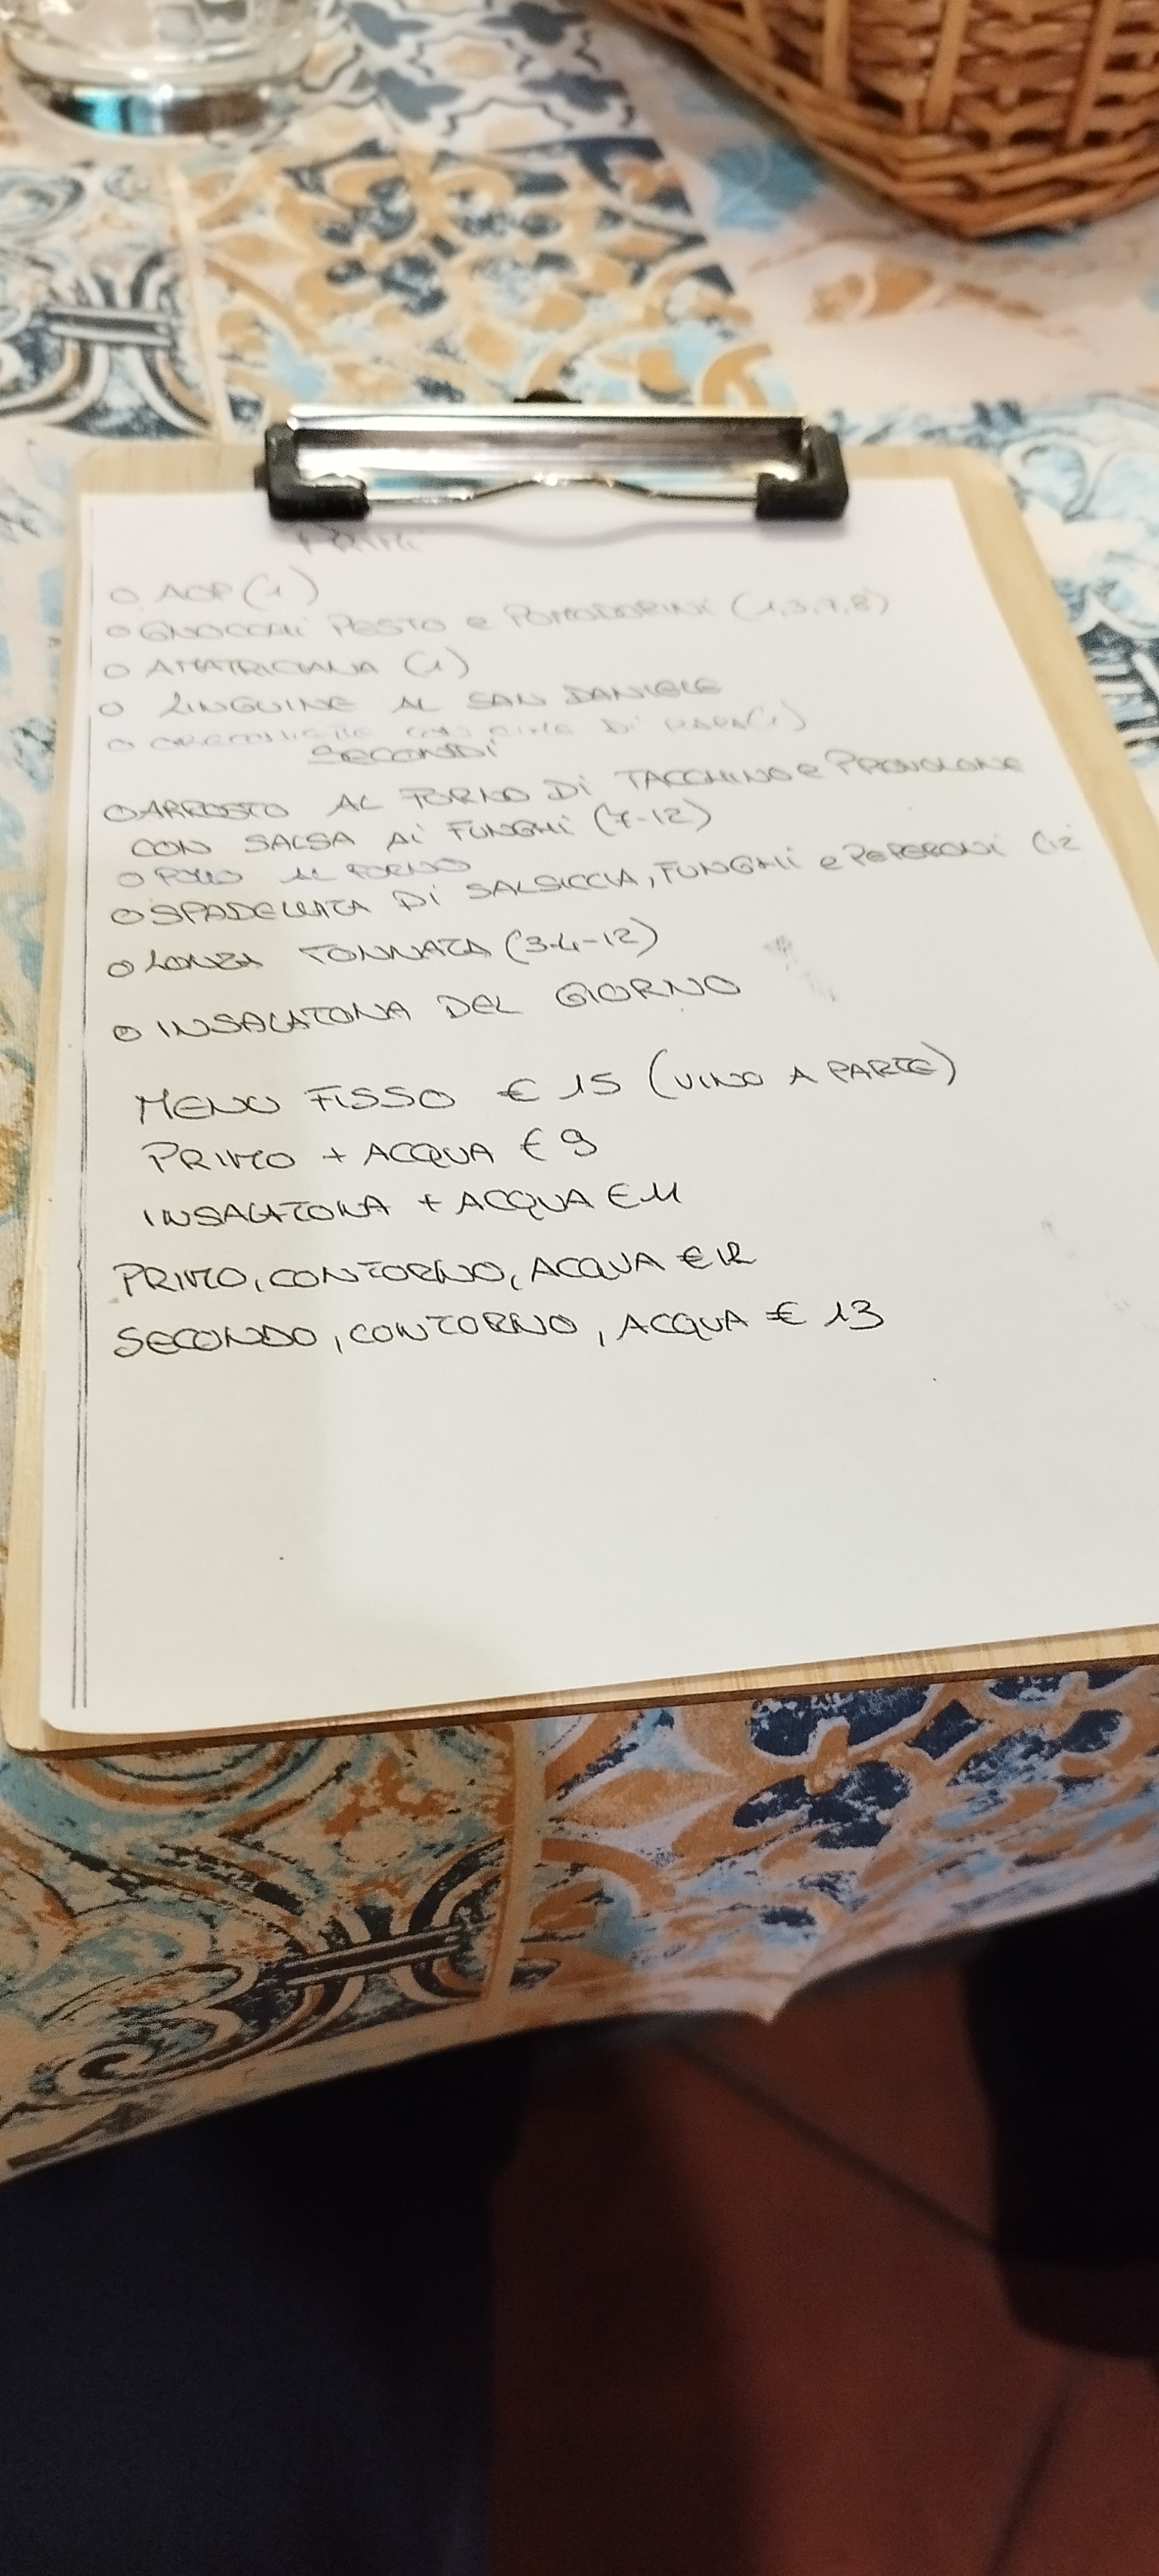 PRIMI
O AOP (1)
O GNOCCHI PESTO e POMODORINI (1,3,7,8)
O AMATRICIANA (1)
O LINGUINE AL SAN DANIELE
O ORECCHIETTE CON CIME DI RAPA (1)
SECONDI
O ARROSTO AL FORNO DI TACCHINO e PROVOLONE
CON SALSA AI FUNGHI (7-12)
O POLLO AL FORNO
O SPADELLATA DI SALSICCIA, FUNGHI e PEPERONI (12
O LONZA TONNATA (3-4-12)
O INSALATONA DEL GIORNO
MENU FISSO € 15 (VINO A PARTE)
PRIMO + ACQUA € 9
INSALATONA + ACQUA € 11
PRIMO, CONTORNO, ACQUA € 12
SECONDO, CONTORNO, ACQUA € 13